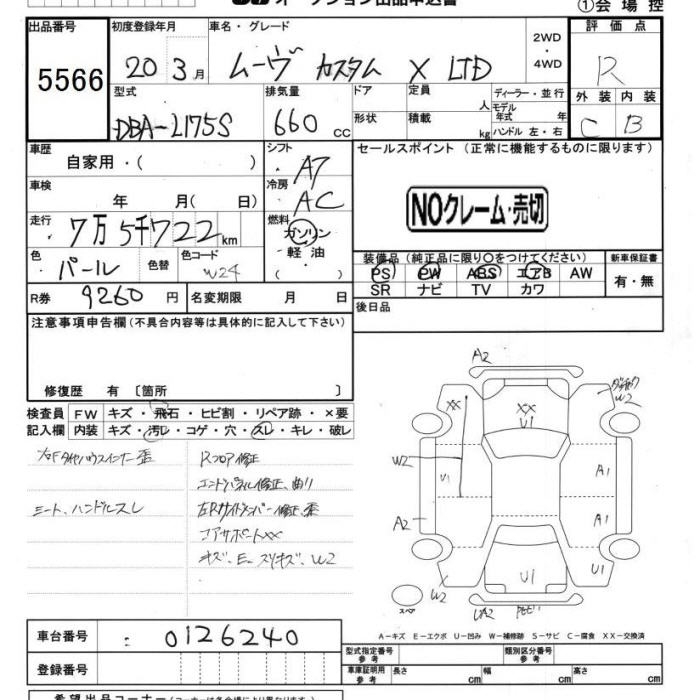 オークション出品申込書
①会場控
出品番号 初度登録年月 車名・グレード 2WD・4WD 評価点
5566 20 3月 ムーヴ カスタム X LTD R
型式 排気量 ドア形状 定員 人 ディーラー・並行 外装 内装
DBA-L175S 660cc 積載 kg モデル年式 年式 ハンドル 左・右 C B
車歴 シフト セールスポイント (正常に機能するものに限ります)
自家用・( ) A7
車検 冷房 NOクレーム・売切
年 月( 日) AC
走行 燃料
7万5千722km ガソリン・軽油・( )
色 色替 色コード 装備品(純正品に限り○をつけてください) 新車保証書
パール W24 PS PW ABS エアB AW 有・無
SR ナビ TV カワ
R券 9260円 名変期限 月 日 後日品
注意事項申告欄(不具合内容等は具体的に記入して下さい)
修復歴 有 〔箇所 〕
検査員記入欄 FW キズ・飛石・ヒビ割・リペア跡・×要
内装 キズ・汚レ・コゲ・穴・スレ・キレ・破レ
Rフロア修正
エンドパネル修正、曲り
シート、ハンドルスレ
コアサポートXX
キズ、E、スリキズ、W2
A2
W2
XX XX
U1
W2 U1 A1
A2 A1
U1 U1
W2
スペア
A-キズ E-エクボ U-凹み W-補修跡 S-サビ C-腐食 XX-交換済
車台番号 : 0126240
登録番号
型式指定番号 参考 類別区分番号 参考
車庫証明用 参考 長さ cm 幅 cm 高さ cm
希望出品コーナー